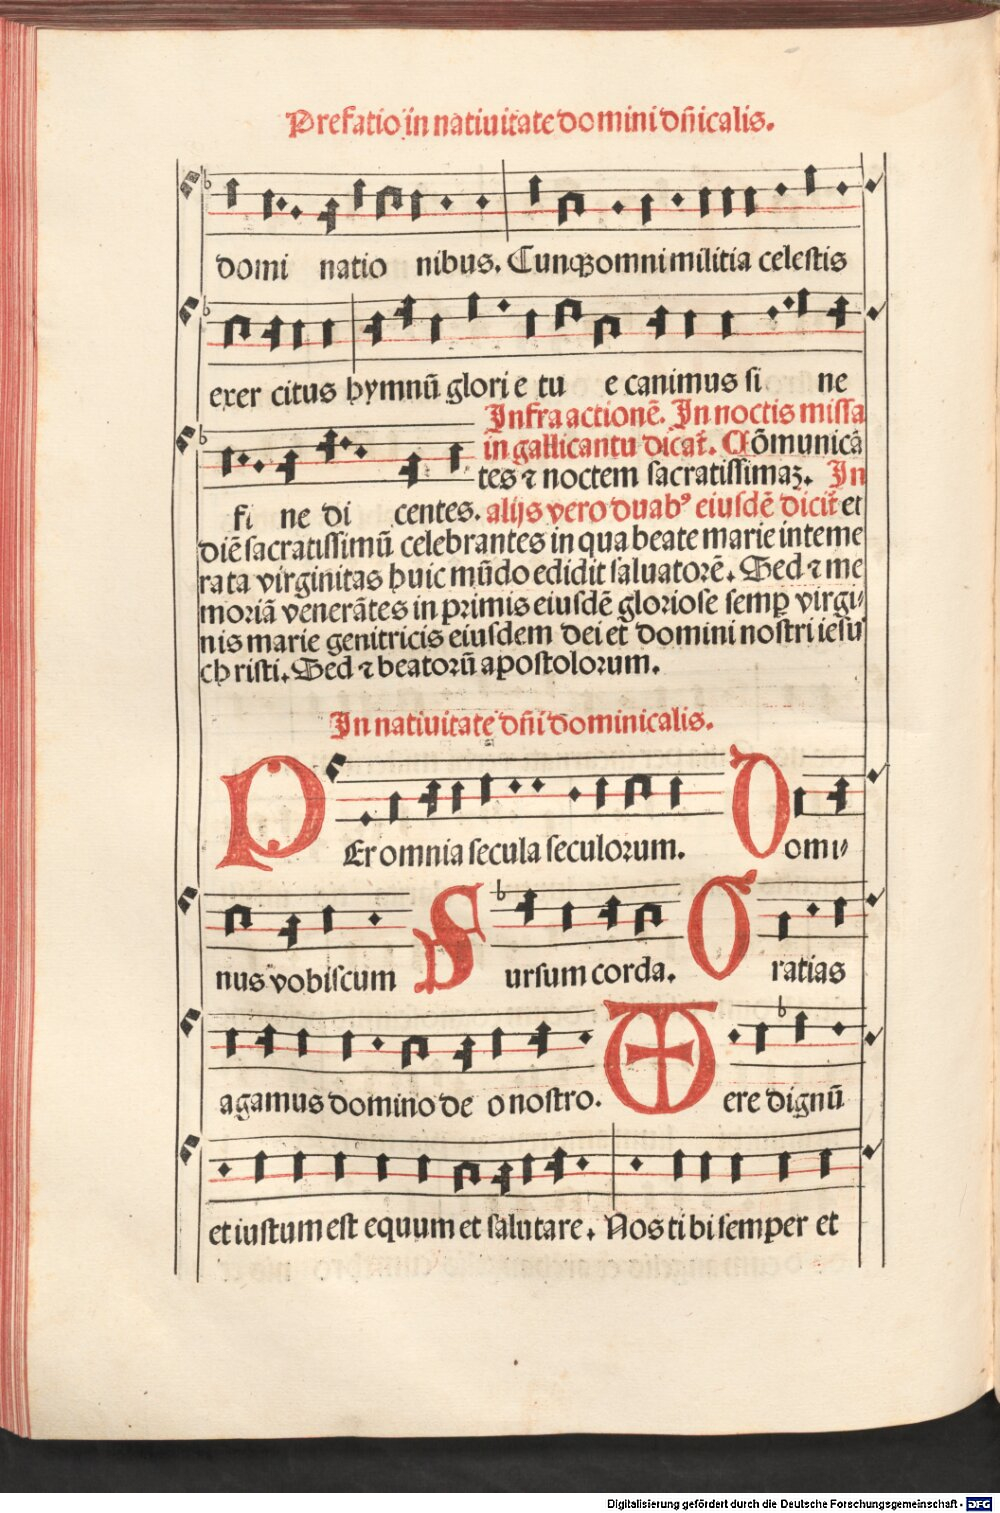 Prefatio in natiuitate domini dñicalis.
domi natio nibus. Cunqꝫ omni militia celestis
exer citus hymnū glori e tu e canimus si ne
Infra actionē. In noctis missa
in gallicantu dicat᷑. Cōmunicā
tes ⁊ noctem sacratissimaꝫ. In
fi ne di centes. alijs vero duabꝰ eiusdē dicit᷑ et
diē sacratissimū celebrantes in qua beate marie inteme
rata virginitas huic mūdo edidit saluatorē. Sed ⁊ me
moriā venerātes in primis eiusdē gloriose semꝑ virgi⸗
nis marie genitricis eiusdem dei et domini nostri iesu
christi. Sed ⁊ beatorū apostolorum.
In natiuitate dñi dominicalis.
PEr omnia secula seculorum. Domi⸗
nus vobiscum Sursum corda. Gratias
agamus domino de o nostro. Vere dignū
et iustum est equum et salutare. Nos ti bi semper et
Digitalisierung gefördert durch die Deutsche Forschungsgemeinschaft - DFG